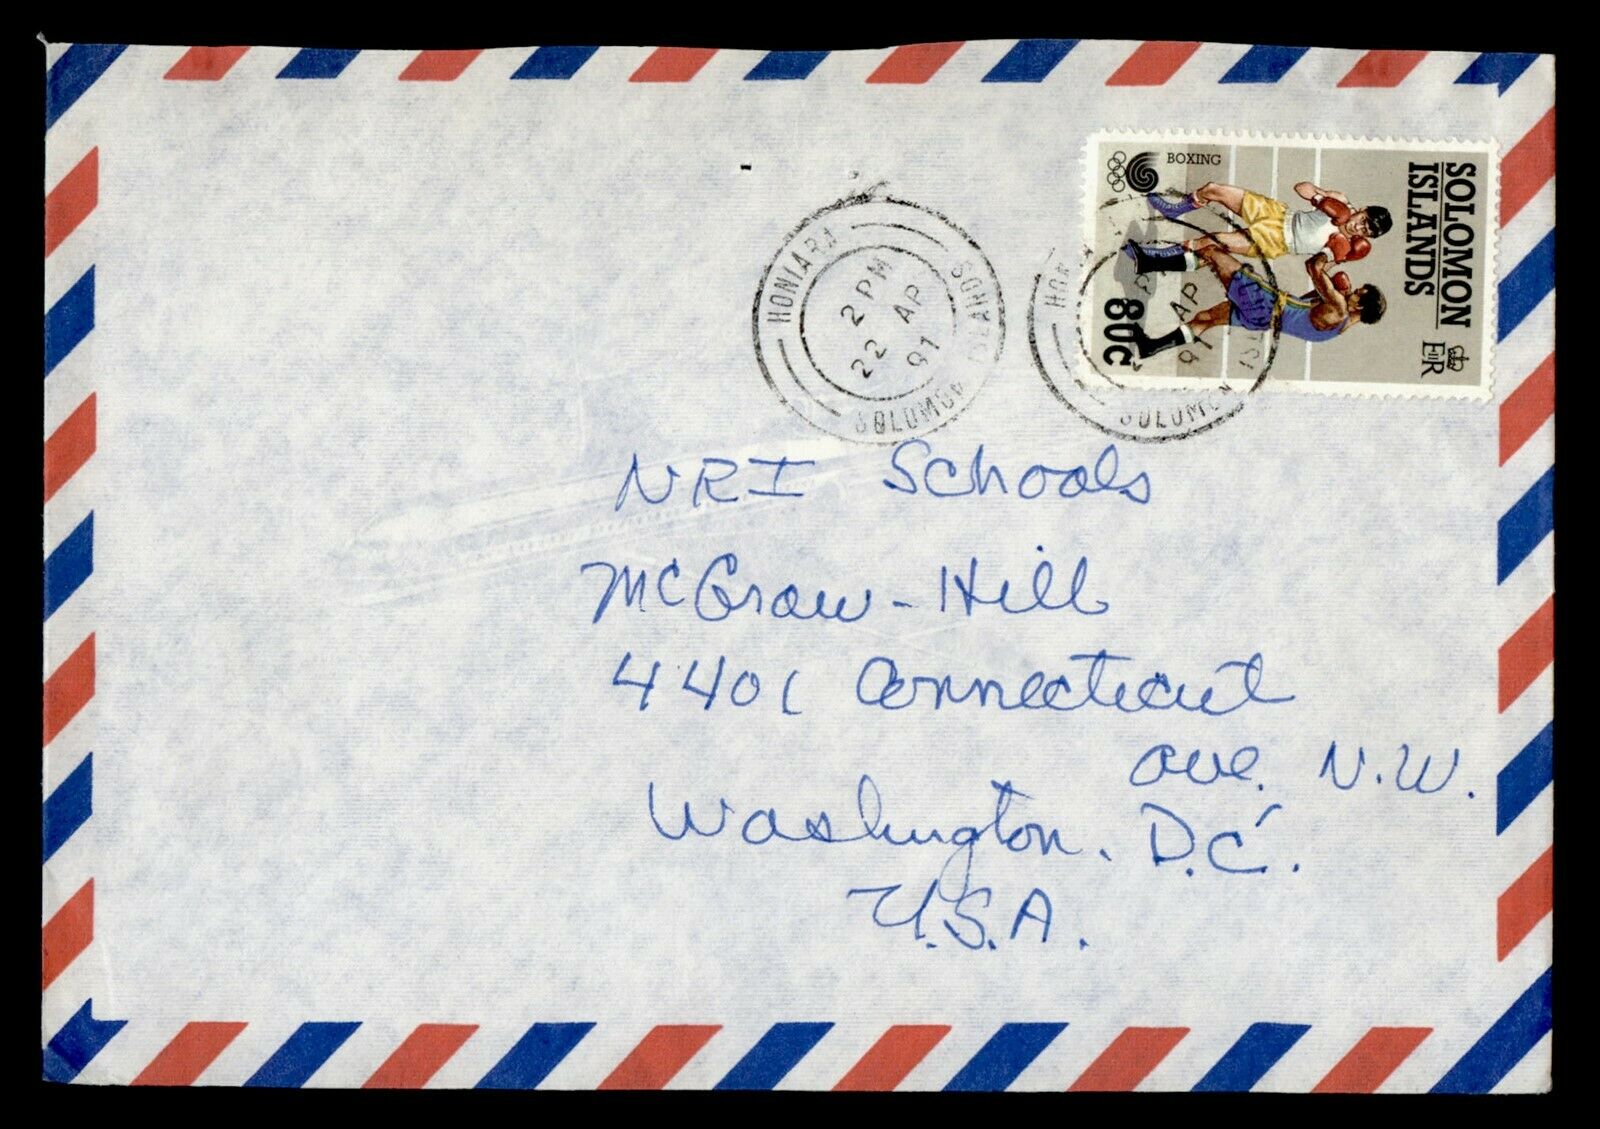 SOLOMON
ISLANDS
BOXING
80c
EIIR
HONIARA
2 PM
22 AP
91
SOLOMON ISLANDS
HONIARA
AP
91
SOLOMON ISLANDS
NRI Schools
McGraw-Hill
4401 Connecticut
Ave. N.W.
Washington. D.C.
U.S.A.